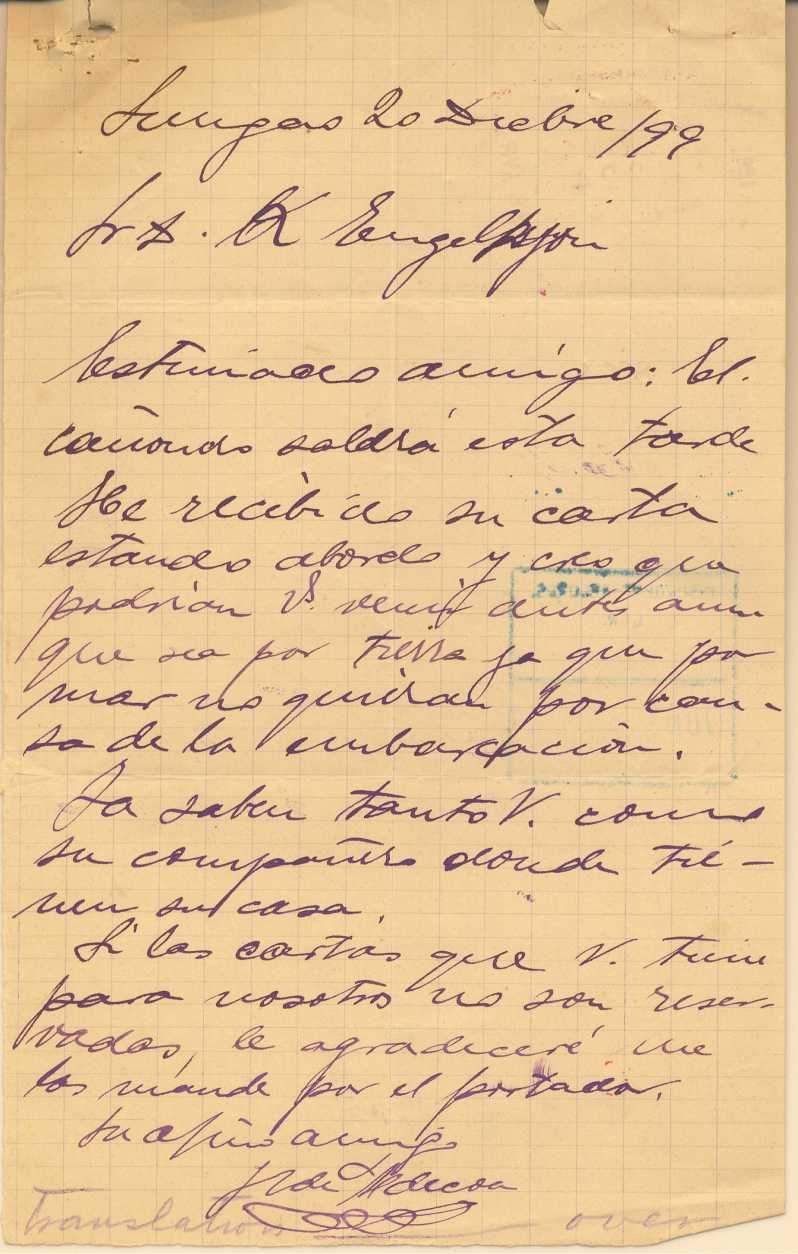 Sungao 20 Diebre/99
Sr D. K Engelhjon
Estimado amigo: El
cañonero saldrá esta tarde
He recibido su carta
estando abordo y creo que
podrian Vs. venir antes aun
que sea por tierra ya que por
mar no quieran por cau-
sa de la embarcación.
Ya saben tanto V. como
su compañero donde tie-
nen su casa.
Si las cartas que V. tiene
para nosotros no son reser-
vadas, le agradeceré me
las mande por el portador.
Su afmo amigo
Translation over